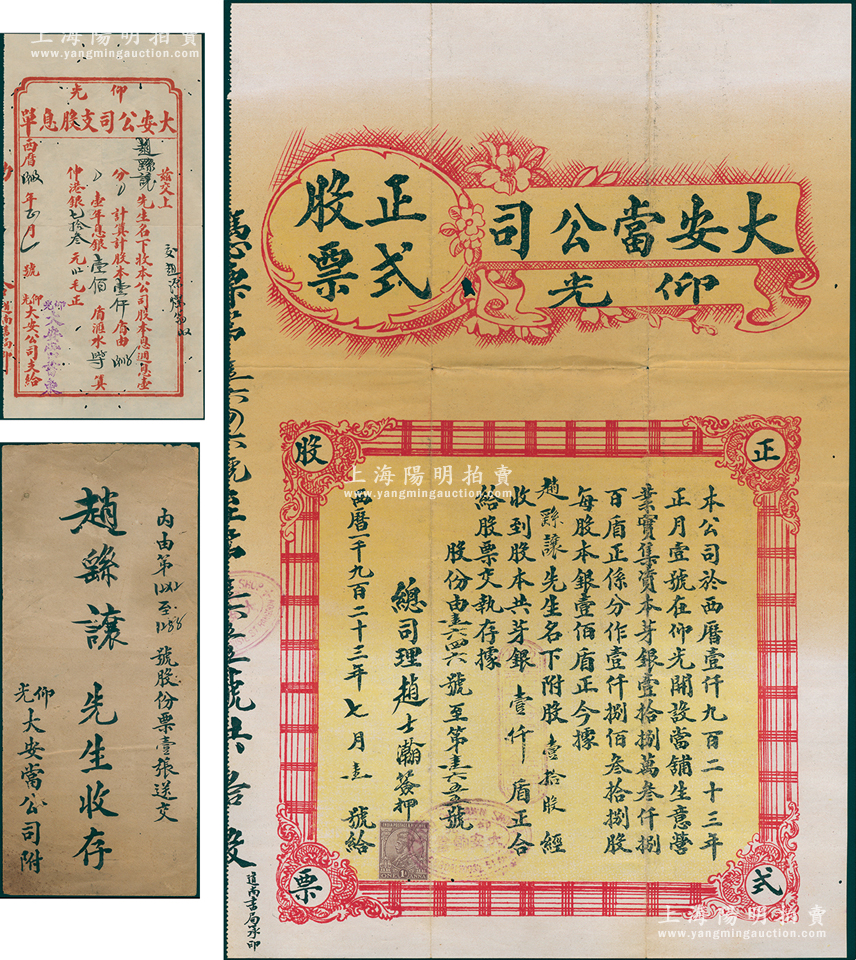 上海陽明拍賣
www.yangmingauction.com
仰光
大安公司支股息單
茲交上
趙縣讓先生名下收本公司股本息週息壹
分 計算計股本壹仟盾由
壹年息銀壹佰盾滙水 算
伸港銀七拾叁元 毛正
西曆 年 月 號
仰光大安公司支給
內由第 至 號股份票壹張送交
趙縣讓先生收存
仰光大安當公司附
大安當公司
仰光
正式股票
正式股票
本公司於西曆壹仟九百二十三年
正月壹號在仰光開設當舖生意營
業實集資本芽銀壹拾捌萬叁仟捌
百盾正係分作壹仟捌佰叁拾捌股
每股本銀壹佰盾正今據
趙縣讓先生名下附股壹拾股經
收到股本共芽銀壹仟盾正合
給股票交執存據
股份由 六四六號至第 六五五號
總司理趙士瀚簽押
西曆一千九百二十三年七月 號給
上海陽明拍賣
www.yangmingauction.com
道南書局承印
上海陽明拍賣
www.yangmingauction.com